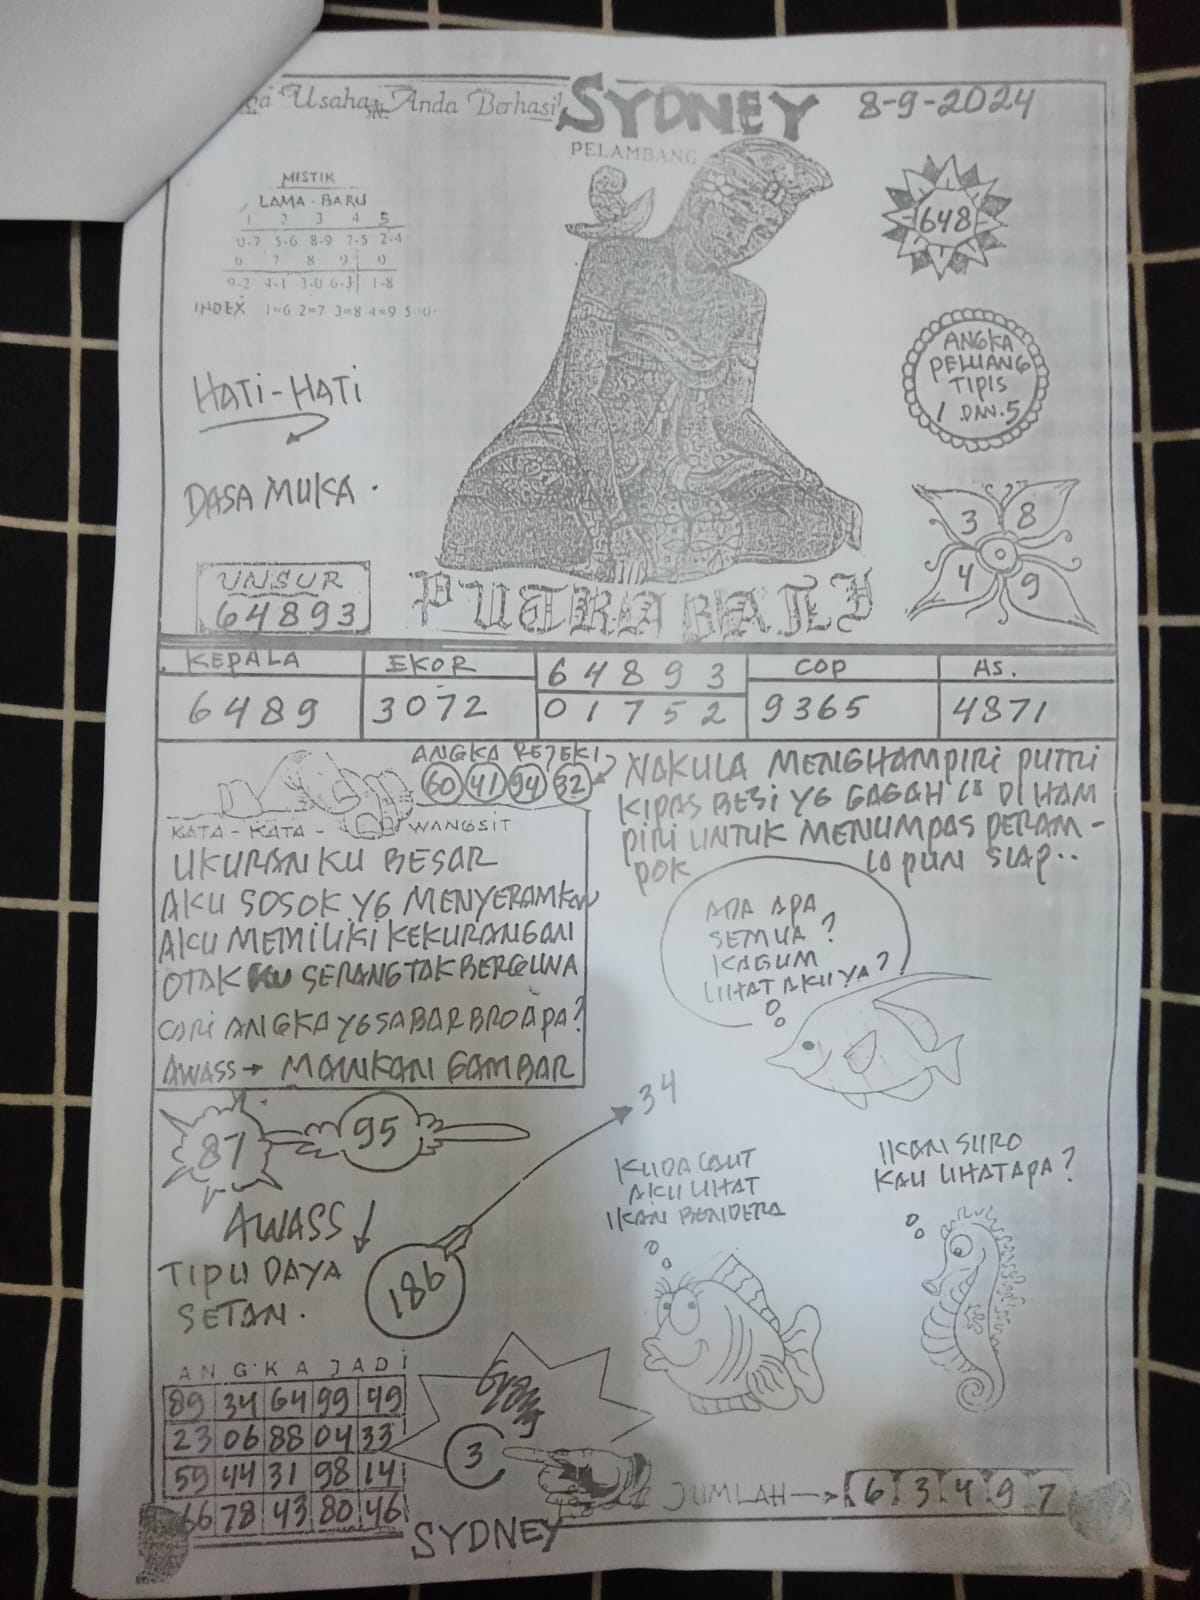 Usaha Anda Berhasil
SYDNEY
8-9-2024
PELAMBANG
MISTIK
LAMA - BARU
1 2 3 4 5
0-7 5-6 8-9 7-5 2-4
6 7 8 9 0
9-2 4-1 3-0 6-3 1-8
INDEX 1=6 2=7 3=8 4=9 5=0
648
ANGKA
PELUANG
TIPIS
1 DAN 5
HATI-HATI
DASA MUKA.
3 8
4 9
UNSUR
64893
PUTRA BALI
KEPALA EKOR 64893 COP AS.
6489 3072 01752 9365 4871
ANGKA REJEKI
60 41 94 32
NAKULA MENGHAMPIRI PUTRI
KIPAS BESI YG GAGAH DI HAM
PIRI UNTUK MENUMPAS PERAM-
POK IA PUN SIAP..
KATA-KATA- WANGSIT
UKURANKU BESAR
AKU SOSOK YG MENYERAMKAN
AKU MEMILIKI KEKURANGAN
OTAK KU SERANG TAK BERGUNA
CARI ANGKA YG SABAR BRO APA?
AWASS → MAINKAN GAMBAR
ADA APA
SEMUA?
KAGUM
LIHAT AKU YA?
87 95
34
KUDA LAUT
AKU LIHAT
IKAN BENDERA
IKAN SURO
KAU LIHAT APA?
AWASS
TIPU DAYA
SETAN.
186
ANGKA JADI
89 34 64 99 49
23 06 88 04 33
59 44 31 98 14
66 78 43 80 46
3
JUMLAH → 6 3 4 9 7
SYDNEY